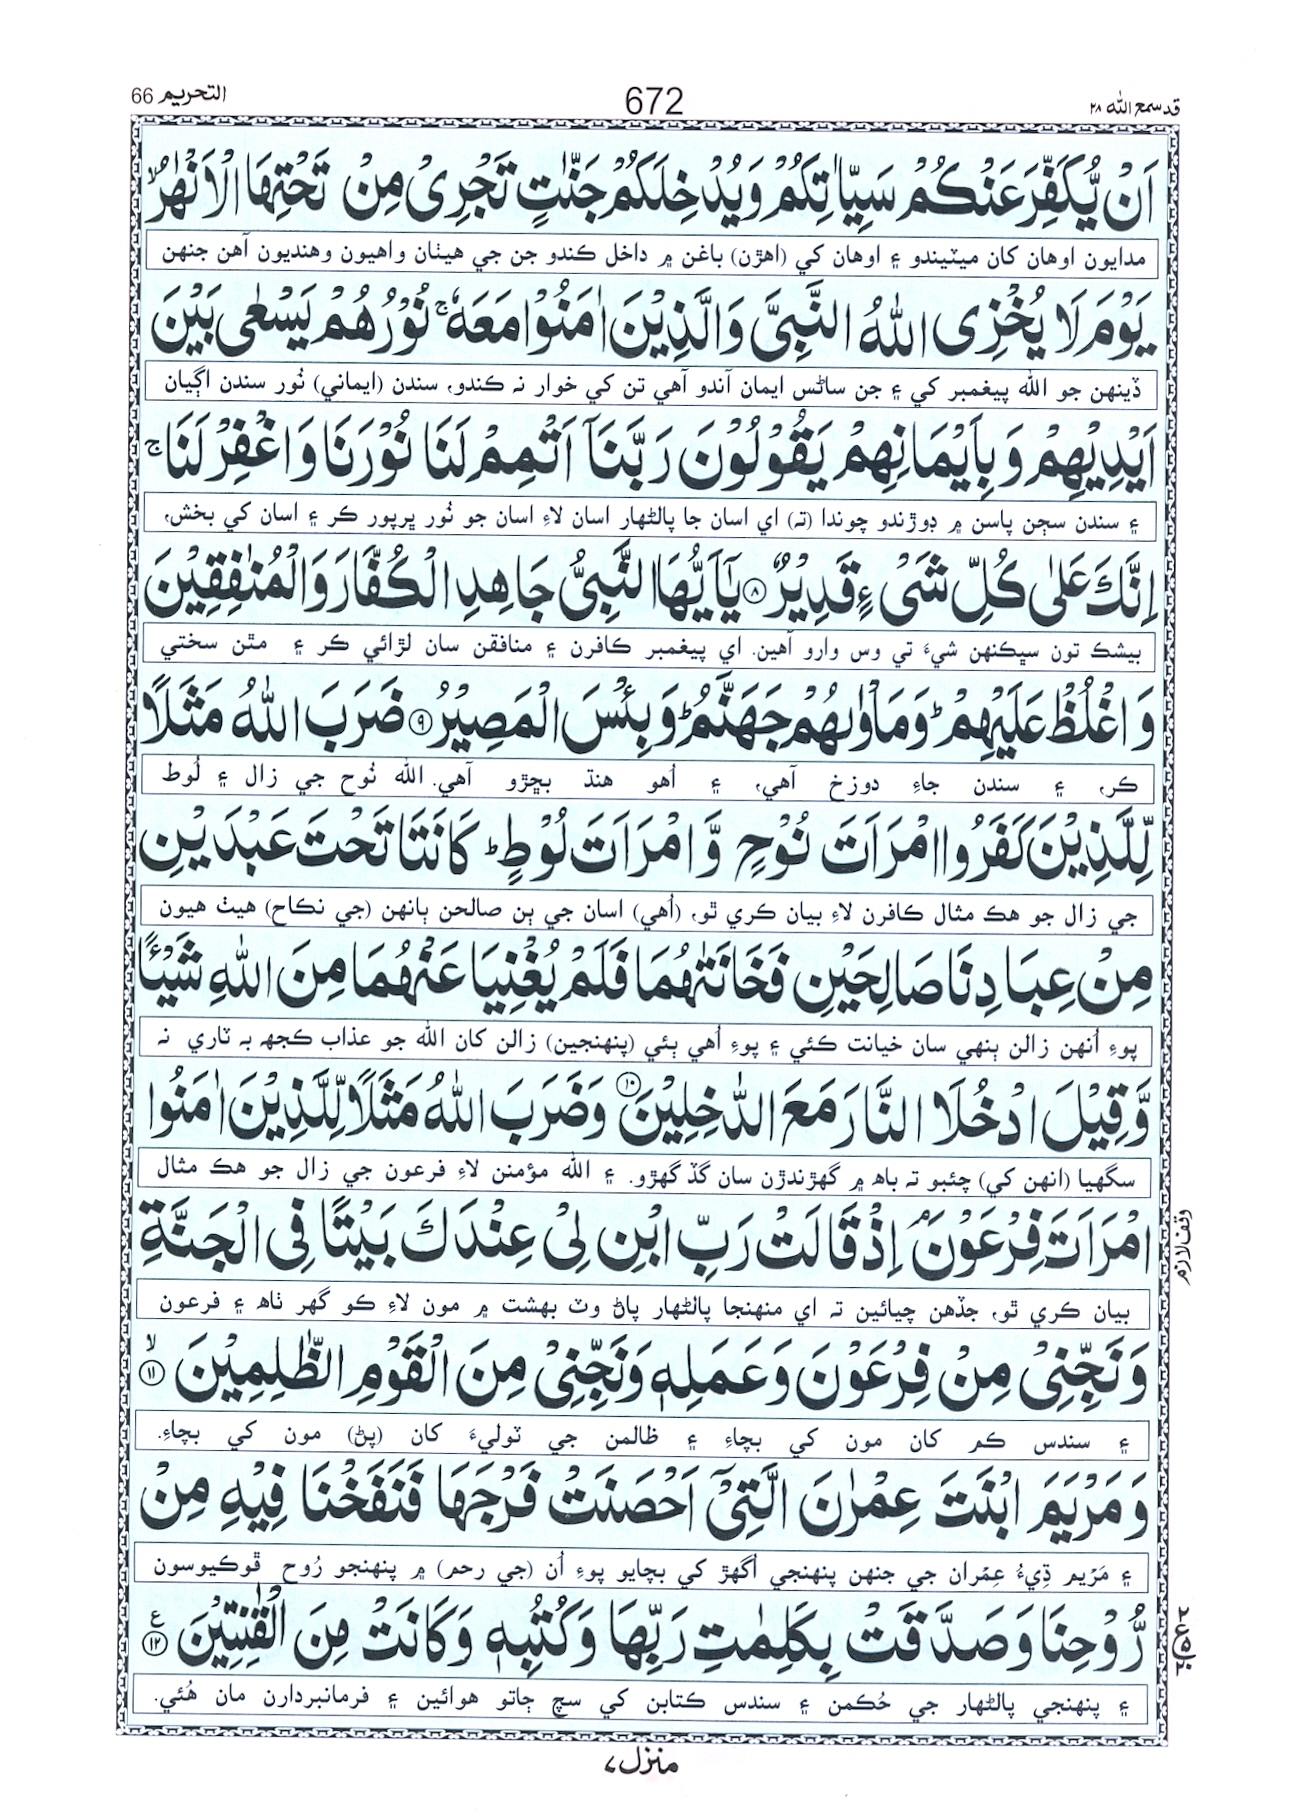 قد سمع الله ٢٨
672
التحريم 66
اَنْ يُّكَفِّرَ عَنْكُمْ سَيِّاٰتِكُمْ وَيُدْخِلَكُمْ جَنّٰتٍ تَجْرِىْ مِنْ تَحْتِهَا الْاَنْهٰرُ ۙ
مدايون اوهان کان ميٽيندو ۽ اوهان کي (اهڙن) باغن ۾ داخل ڪندو جن جي هيٺان واهيون وهنديون آهن جنهن
يَوْمَ لَا يُخْزِى اللّٰهُ النَّبِىَّ وَالَّذِيْنَ اٰمَنُوْا مَعَهٗ ۚ نُوْرُهُمْ يَسْعٰى بَيْنَ
ڏينهن جو الله پيغمبر کي ۽ جن ساڻس ايمان آندو آهي تن کي خوار نہ ڪندو، سندن (ايماني) نُور سندن اڳيان
اَيْدِيْهِمْ وَبِاَيْمَانِهِمْ يَقُوْلُوْنَ رَبَّنَآ اَتْمِمْ لَنَا نُوْرَنَا وَاغْفِرْ لَنَا ۚ
۽ سندن سڄن پاسن ۾ ڊوڙندو چوندا (تہ) اي اسان جا پالڻهار اسان لاءِ اسان جو نُور ڀرپور ڪر ۽ اسان کي بخش،
اِنَّكَ عَلٰى كُلِّ شَىْءٍ قَدِيْرٌ ۝٨ يٰٓاَيُّهَا النَّبِىُّ جَاهِدِ الْكُفَّارَ وَالْمُنٰفِقِيْنَ
بيشڪ تون سڀڪنهن شيءَ تي وس وارو آهين. اي پيغمبر ڪافرن ۽ منافقن سان لڙائي ڪر ۽ مٿن سختي
وَاغْلُظْ عَلَيْهِمْ ؕ وَمَاْوٰىهُمْ جَهَنَّمُ ؕ وَبِئْسَ الْمَصِيْرُ ۝٩ ضَرَبَ اللّٰهُ مَثَلًا
ڪر، ۽ سندن جاءِ دوزخ آهي، ۽ اُهو هنڌ بڇڙو آهي. الله نُوح جي زال ۽ لُوط
لِّلَّذِيْنَ كَفَرُوا امْرَاَتَ نُوْحٍ وَّامْرَاَتَ لُوْطٍ ؕ كَانَتَا تَحْتَ عَبْدَيْنِ
جي زال جو هڪ مثال ڪافرن لاءِ بيان ڪري ٿو، (اُهي) اسان جي ٻن صالحن ٻانهن (جي نڪاح) هيٺ هيون
مِنْ عِبَادِنَا صَالِحَيْنِ فَخَانَتٰهُمَا فَلَمْ يُغْنِيَا عَنْهُمَا مِنَ اللّٰهِ شَيْـًٔا
پوءِ اُنهن زالن ٻنهي سان خيانت ڪئي ۽ پوءِ اُهي ٻئي (پنهنجين) زالن کان الله جو عذاب ڪجهہ بہ ٽاري نہ
وَّقِيْلَ ادْخُلَا النَّارَ مَعَ الدّٰخِلِيْنَ ۝١٠ وَضَرَبَ اللّٰهُ مَثَلًا لِّلَّذِيْنَ اٰمَنُوا
سگهيا (انهن کي) چئبو تہ باهہ ۾ گهڙندڙن سان گڏ گهڙو. ۽ الله مؤمنن لاءِ فرعون جي زال جو هڪ مثال
امْرَاَتَ فِرْعَوْنَ ۘ اِذْ قَالَتْ رَبِّ ابْنِ لِىْ عِنْدَكَ بَيْتًا فِى الْجَنَّةِ
وقف لازم
بيان ڪري ٿو، جڏهن چيائين تہ اي منهنجا پالڻهار پاڻ وٽ بهشت ۾ مون لاءِ ڪو گهر ٺاهہ ۽ فرعون
وَنَجِّنِىْ مِنْ فِرْعَوْنَ وَعَمَلِهٖ وَنَجِّنِىْ مِنَ الْقَوْمِ الظّٰلِمِيْنَ ۝١١ ۙ
۽ سندس ڪم کان مون کي بچاءِ ۽ ظالمن جي ٽوليءَ کان (پڻ) مون کي بچاءِ.
وَمَرْيَمَ ابْنَتَ عِمْرٰنَ الَّتِىْٓ اَحْصَنَتْ فَرْجَهَا فَنَفَخْنَا فِيْهِ مِنْ
۽ مَرْيم ڌِيءُ عِمْران جي جنهن پنهنجي اُگهڙ کي بچايو پوءِ اُن (جي رحم) ۾ پنهنجو رُوح ڦوڪيوسون
رُّوْحِنَا وَصَدَّقَتْ بِكَلِمٰتِ رَبِّهَا وَكُتُبِهٖ وَكَانَتْ مِنَ الْقٰنِتِيْنَ ۝١٢ ع
۽ پنهنجي پالڻهار جي حُڪمن ۽ سندس ڪتابن کي سچ ڄاتو هوائين ۽ فرمانبردارن مان هُئي.
منزل ٧